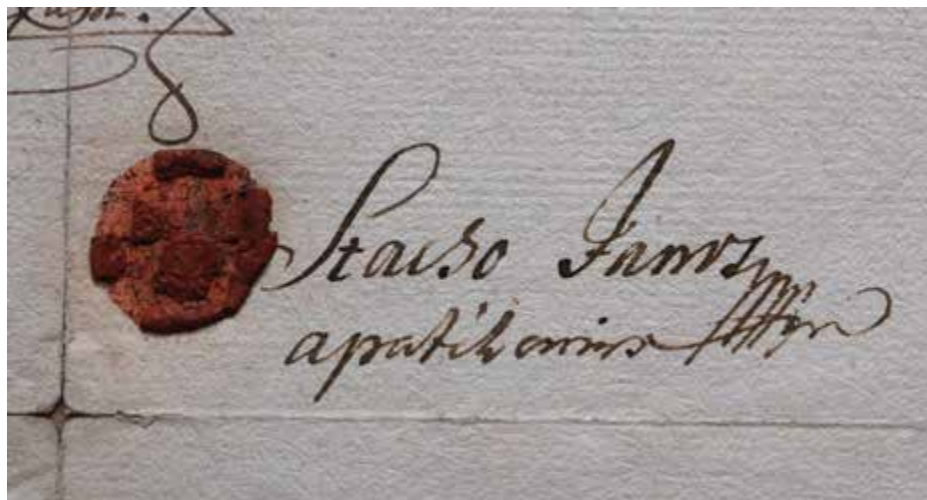 Stacho Janos
apatikarius